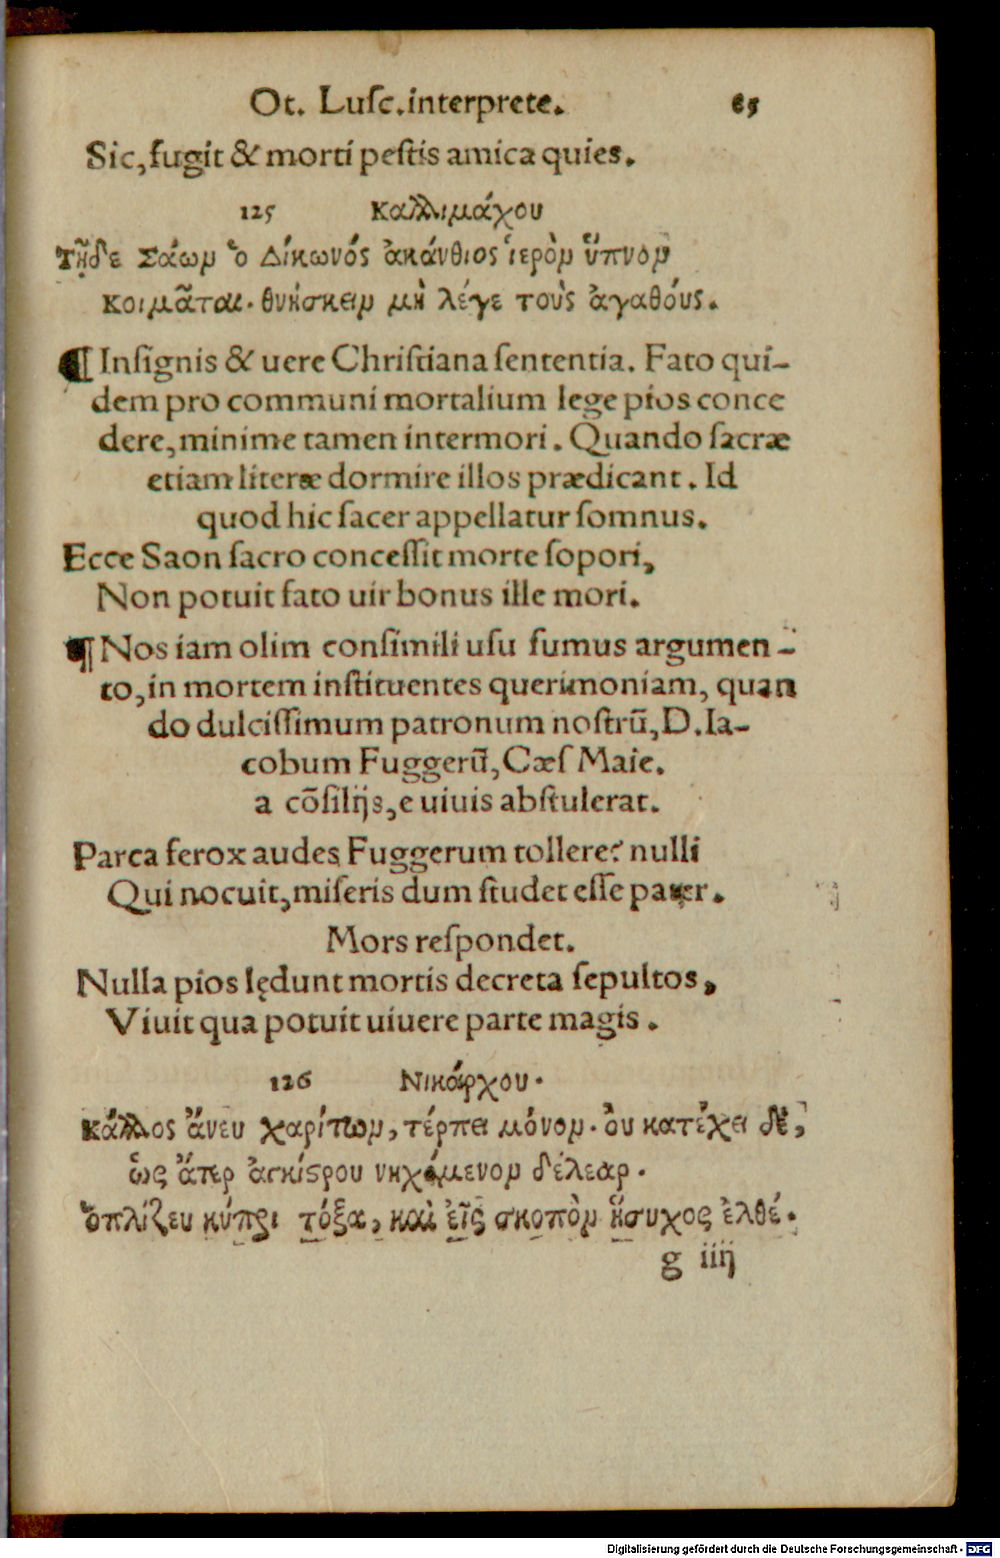 Ot. Luſc. interprete. 65
Sic, fugit & morti peſtis amica quies.
125 Καλλιμάχου
Τῇδε Σάων ὁ Δίκωνός ἀκάνθιος ἱερὸν ὕπνον
κοιμᾶται. θνήσκειν μὴ λέγε τοὺς ἀγαθούς.
¶ Inſignis & uere Chriſtiana ſententia. Fato qui-
dem pro communi mortalium lege pios conce
dere, minime tamen intermori. Quando ſacræ
etiam literæ dormire illos prædicant. Id
quod hic ſacer appellatur ſomnus.
Ecce Saon ſacro conceſſit morte ſopori,
Non potuit fato uir bonus ille mori.
¶ Nos iam olim conſimili uſu ſumus argumen-
to, in mortem inſtituentes querimoniam, quan
do dulciſſimum patronum noſtrū, D. Ia-
cobum Fuggerū, Cæſ Maie.
a cōſilijs, e uiuis abſtulerat.
Parca ferox audes Fuggerum tollere? nulli
Qui nocuit, miſeris dum ſtudet eſſe pater.
Mors reſpondet.
Nulla pios lędunt mortis decreta ſepultos,
Viuit qua potuit uiuere parte magis.
126 Νικάρχου.
Κάλλος ἄνευ χαρίτων, τέρπει μόνον. ὀυ κατέχει δέ,
ὡς ἄτερ ἀγκίστρου νηχόμενον δέλεαρ.
ὁπλίζευ κύπρι τόξα, καὶ ἐῖς σκοπὸν ἥσυχος ἐλθέ.
g iiij
Digitalisierung gefördert durch die Deutsche Forschungsgemeinschaft - DFG